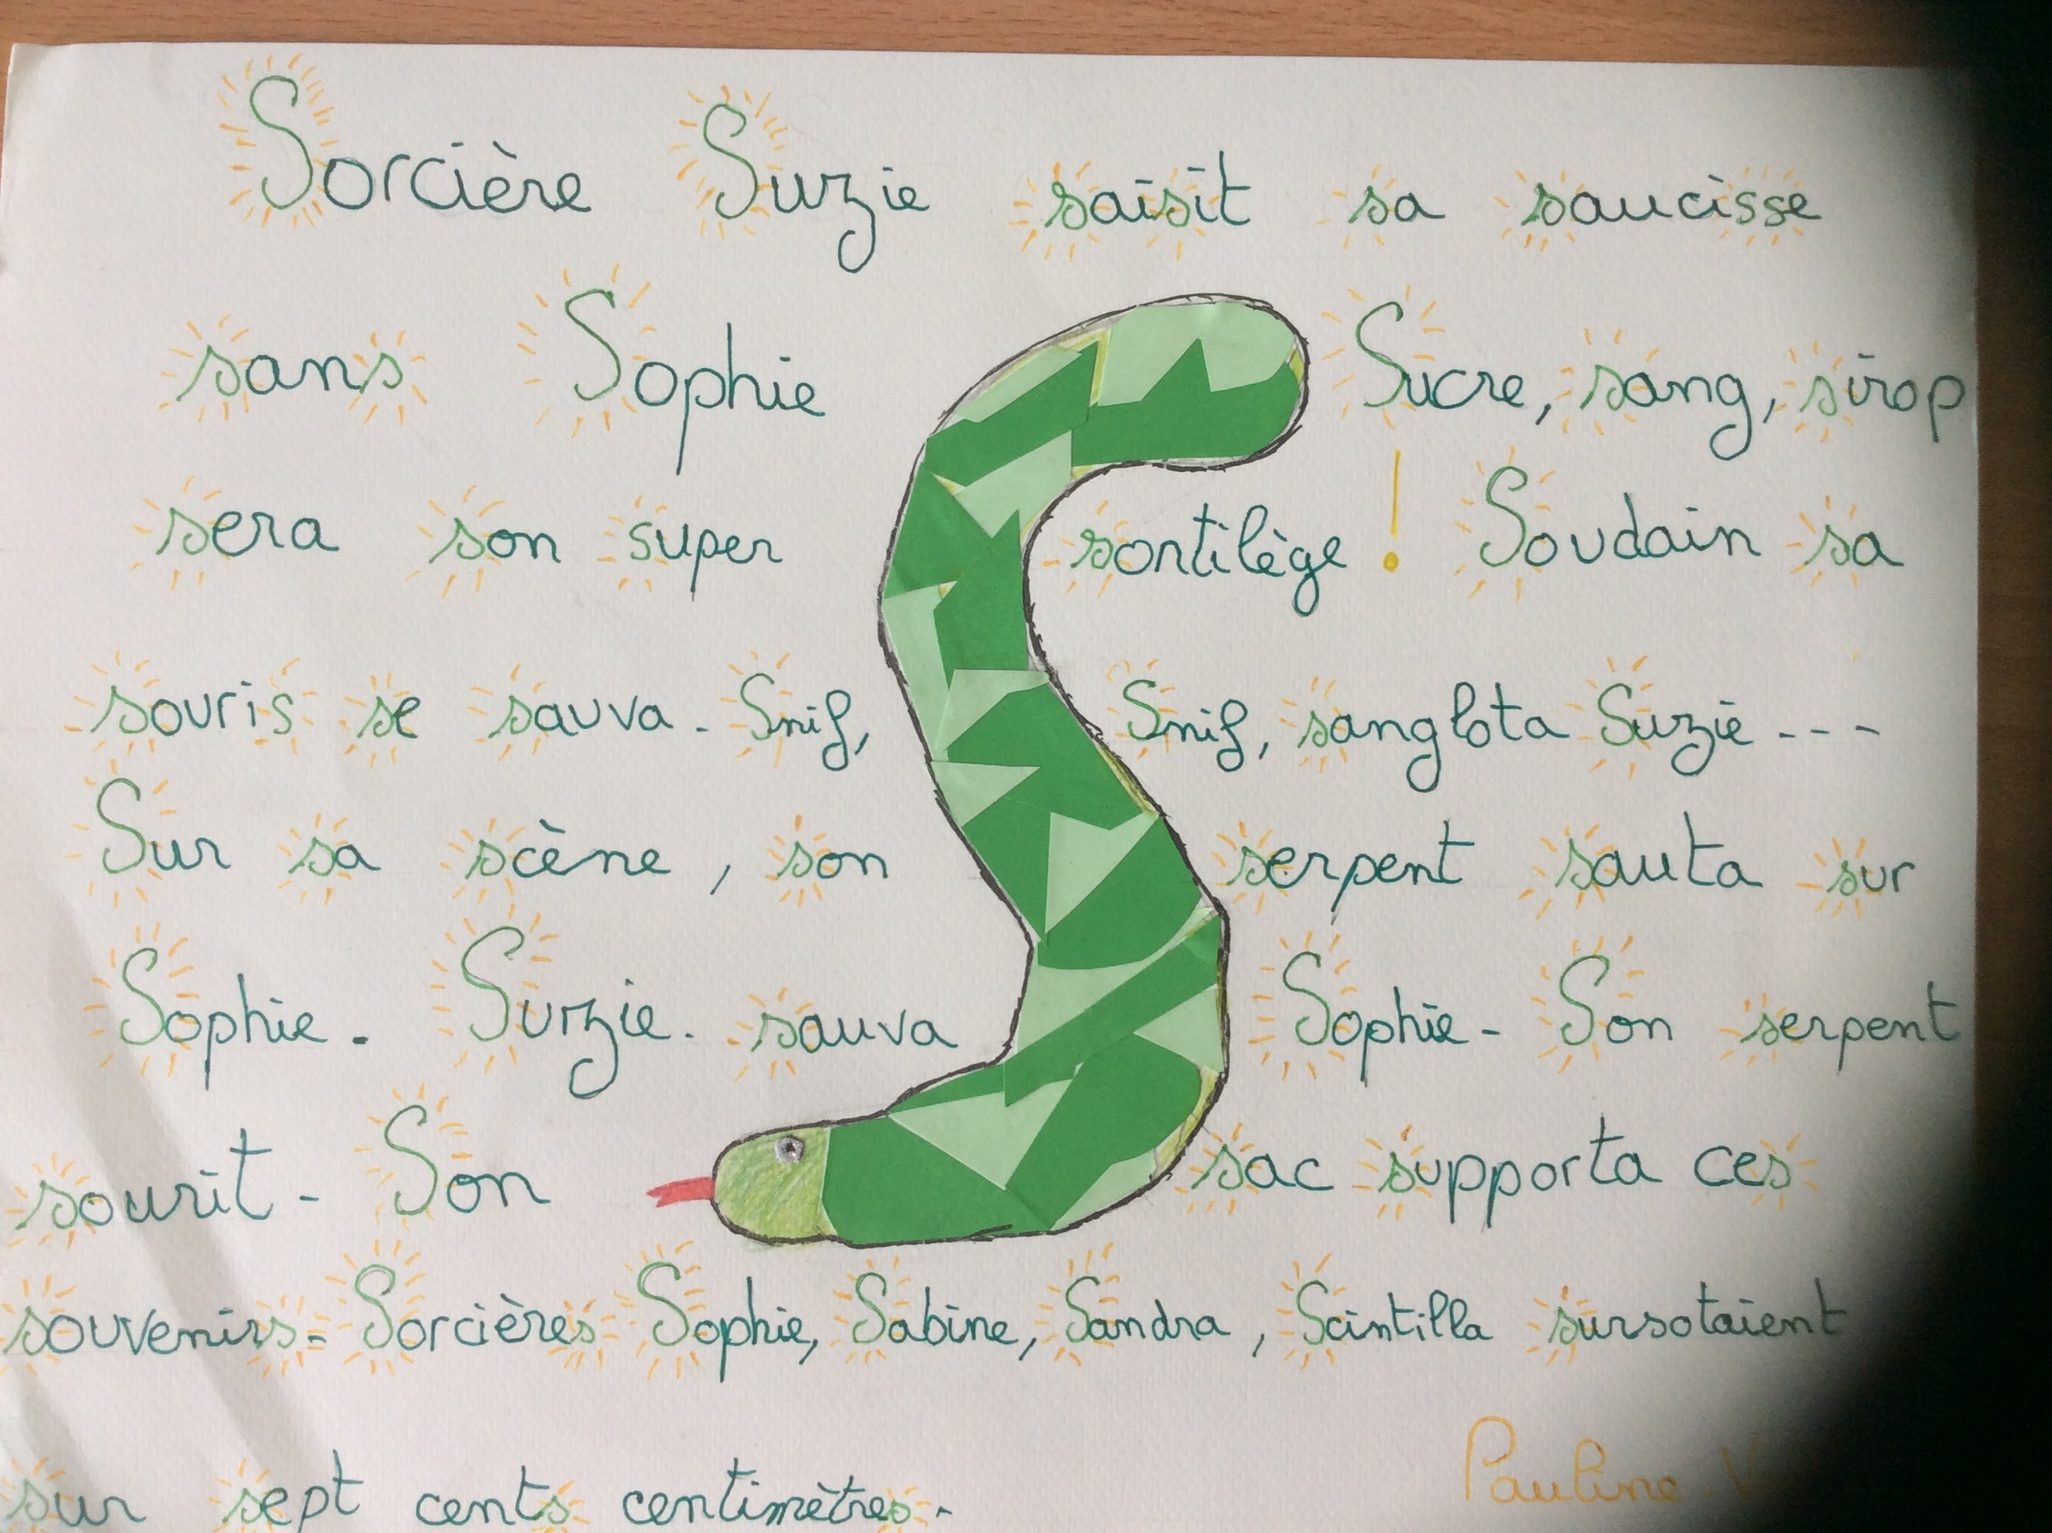 Sorcière Suzie saisit sa saucisse
sans Sophie Sucre, sang, sirop
sera son super sortilège ! Soudain sa
souris se sauva. Snif, Snif, sanglota Suzie ---
Sur sa scène, son serpent sauta sur
Sophie. Suzie. sauva Sophie. Son serpent
sourit. Son sac supporta ces
souvenirs. Sorcières Sophie, Sabine, Sandra, Scintilla sursotaient
sur sept cents centimètres.
Pauline